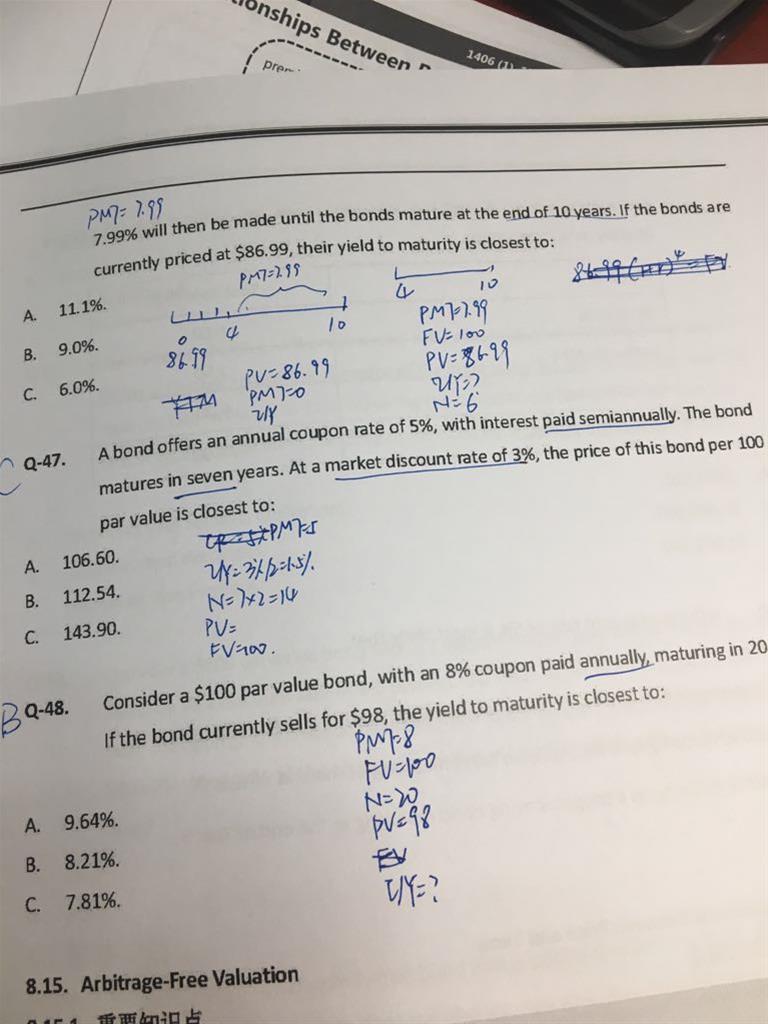 ionships Between
1406 (1)
PMT= 7.99
7.99% will then be made until the bonds mature at the end of 10 years. If the bonds are
currently priced at $86.99, their yield to maturity is closest to:
A. 11.1%.
B. 9.0%.
C. 6.0%.
PMT=7.99
0 4 10
86.99
YTM
PV=86.99
PMT=0
I/Y
4 10
PMT=7.99
FV=100
PV=86.99
I/Y=?
N=6
C Q-47. A bond offers an annual coupon rate of 5%, with interest paid semiannually. The bond
matures in seven years. At a market discount rate of 3%, the price of this bond per 100
par value is closest to:
A. 106.60.
B. 112.54.
C. 143.90.
PMT=5
I/Y=3%/2=1.5%
N=7×2=14
PV=
FV=100.
B Q-48. Consider a $100 par value bond, with an 8% coupon paid annually, maturing in 20
If the bond currently sells for $98, the yield to maturity is closest to:
A. 9.64%.
B. 8.21%.
C. 7.81%.
PMT=8
FV=100
N=20
PV=98
FV
I/Y=?
8.15. Arbitrage-Free Valuation
8.15.1 重要知识点